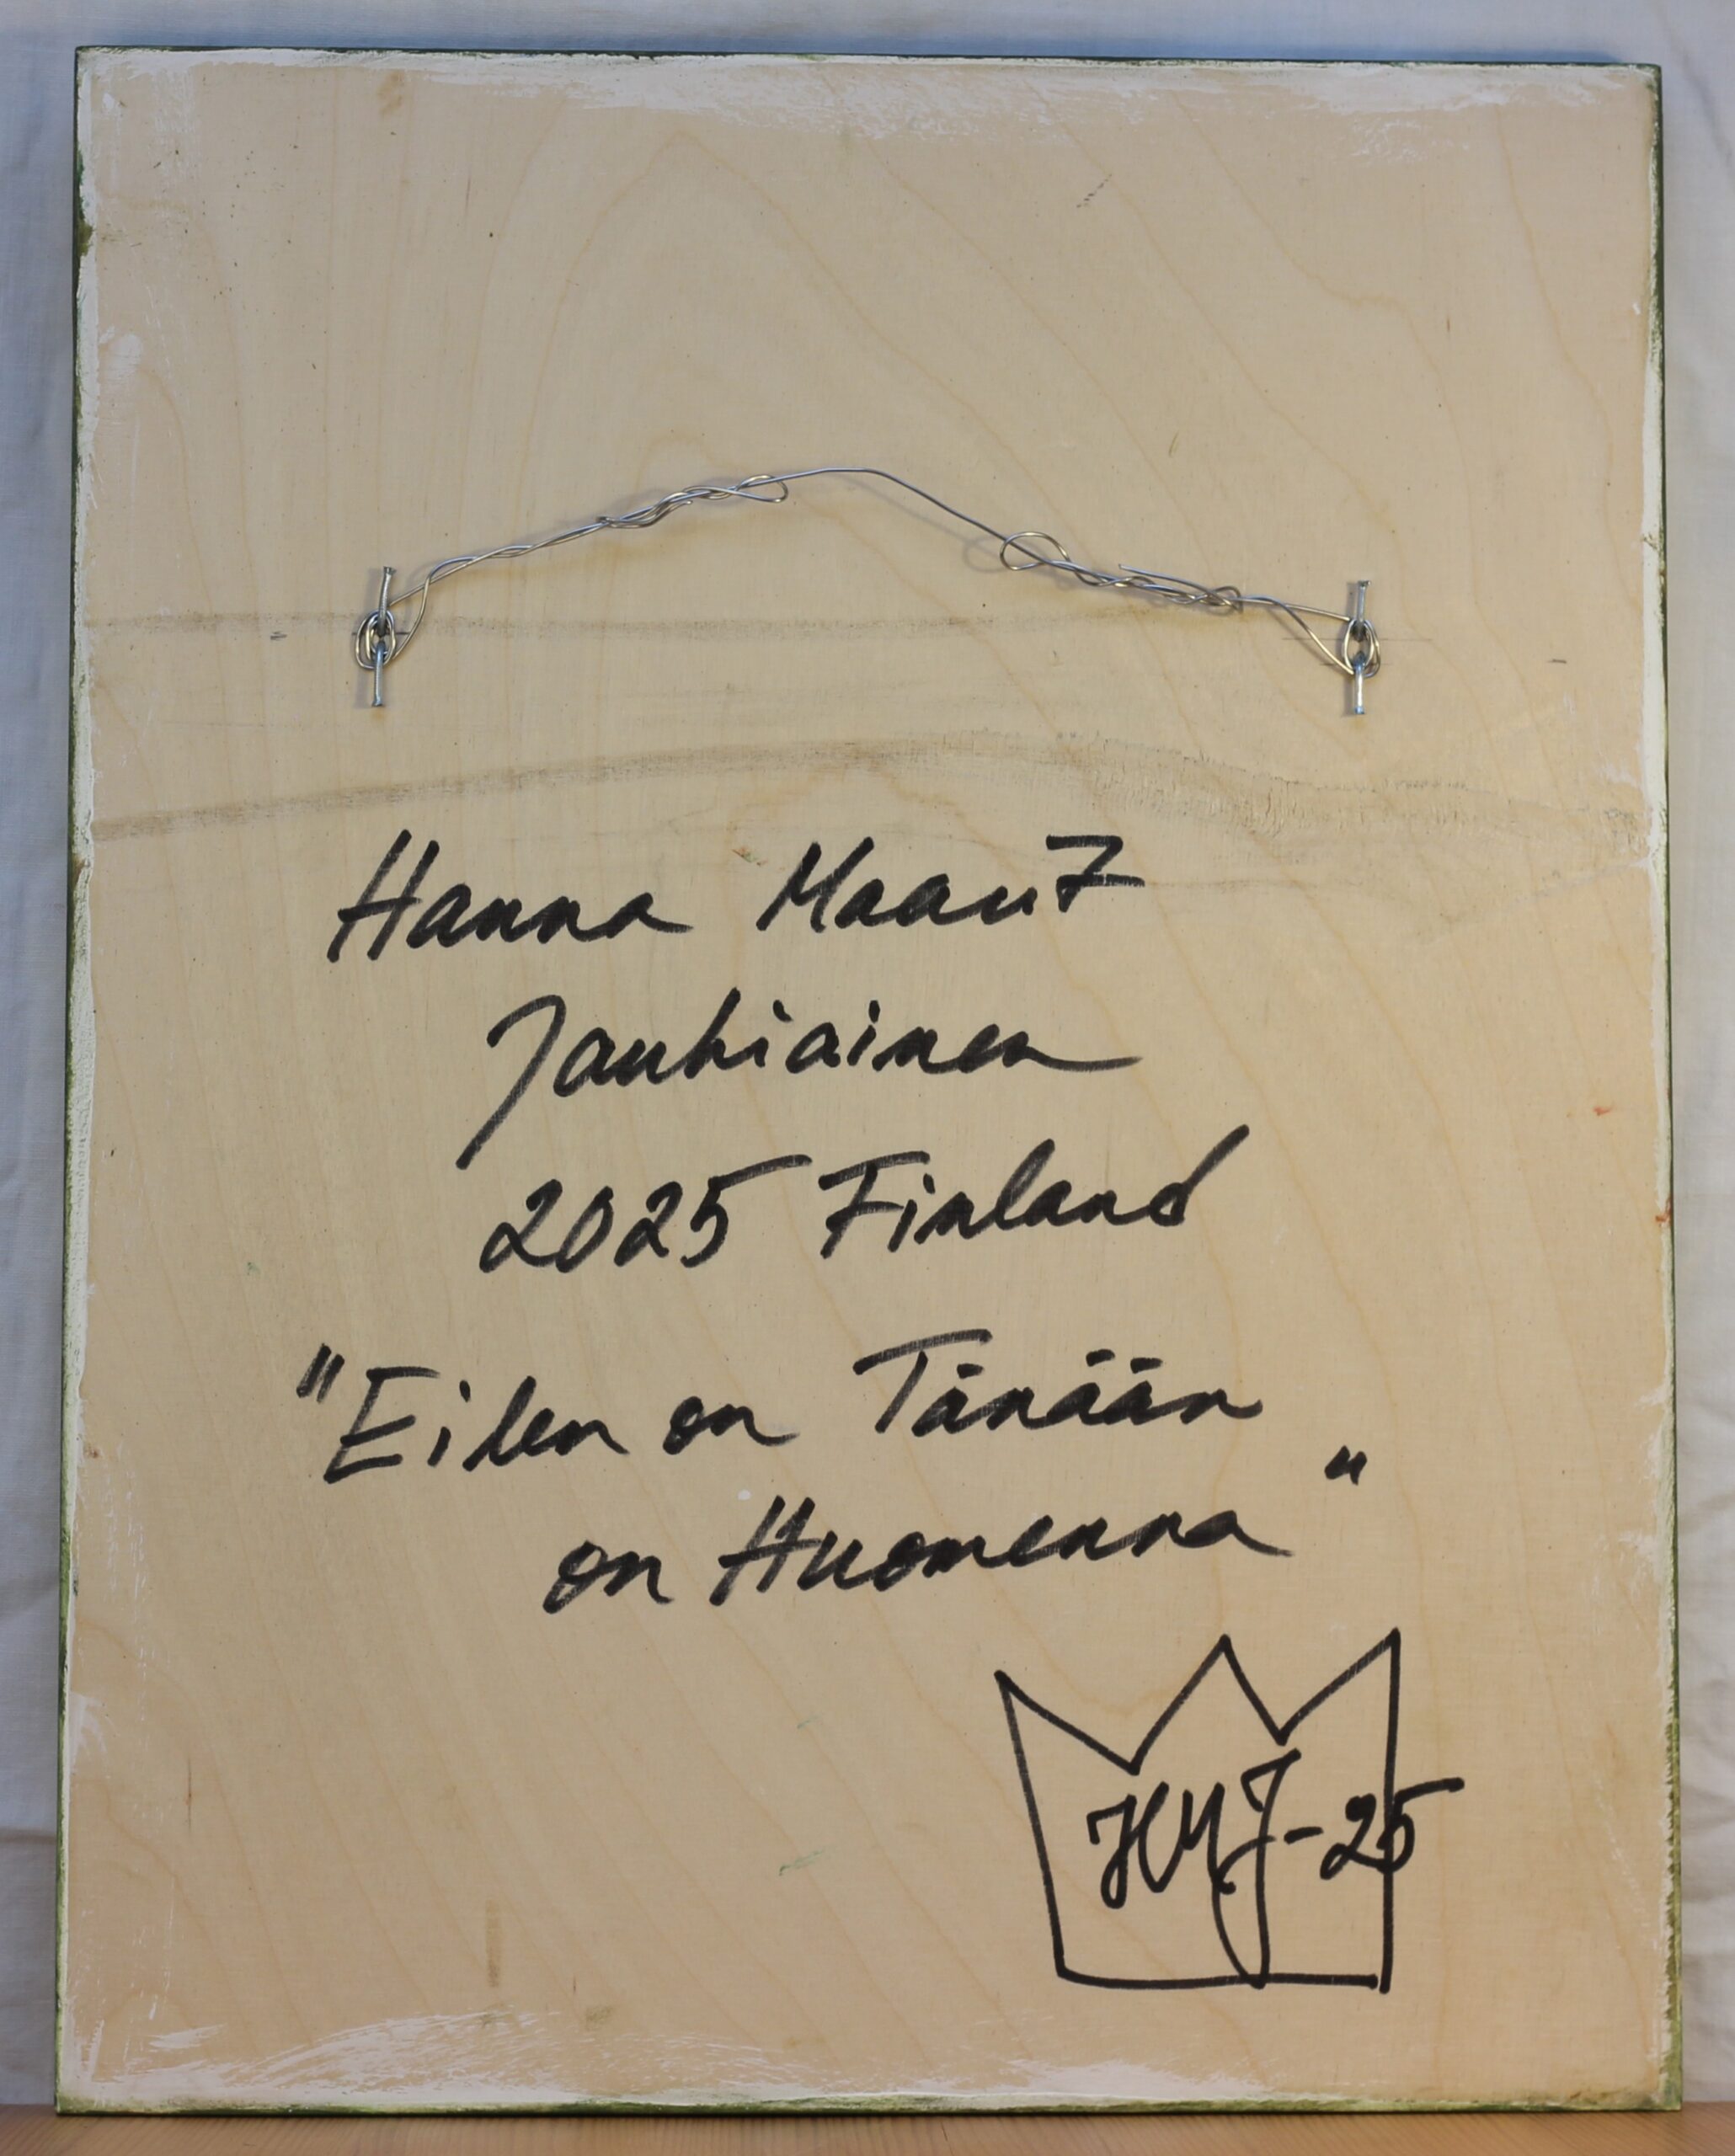 Hanna Maauz
Jauhiainen
2025 Finland
"Eilen on Tänään
on Huomenna"
HMJ-25